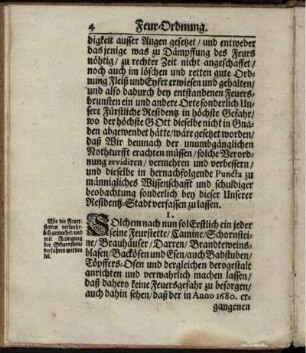 4 Feur-Ordnung.
digkeit ausser Augen gesetzet / und entweder
dasjenige was zu Dämpffung des Feurs
nöhtig / zu rechter Zeit nicht angeschaffet /
noch auch im löschen und retten gute Ord-
nung Fleiß und Eyfer erwiesen und gehalten /
und also dadurch bey entstandenen Feuers-
brunsten ein und andere Orte sonderlich Un-
sere Fürstliche Residentz in höchste Gefahr /
wo der höchste GOtt dieselbe nicht in Gna-
den abgewendet hätte / wäre gesetzet worden /
daß Wir demnach der unumbgänglichen
Nothturfft erachten müssen / solche Verord-
nung revidiren / vermehren und verbessern /
und dieselbe in hernachfolgende Puncta zu
männigliches Wissenschafft und schuldiger
beobachtung sonderlich bey dieser Unserer
Residentz-Stadt verfassen zu lassen.
I.
Wie die Feur-
stetten verwahr-
lich gemachet und
mit Reinigung
der Schornsteine
verfahren werden
sol.
SOlchem nach nun sol Erstlich ein jeder
seine Feurstette / Camine / Schornstei-
ne / Brauhäuser / Darren / Brandteweins-
blasen / Backöfen und Esen / auch Badstuben /
Töpffers-Ofen und dergleichen dergestalt
anrichten und verwahrlich machen lassen /
daß dahero keine Feuersgefahr zu besorgen /
auch dahin sehen / daß der in Anno 1680. er-
gangenen